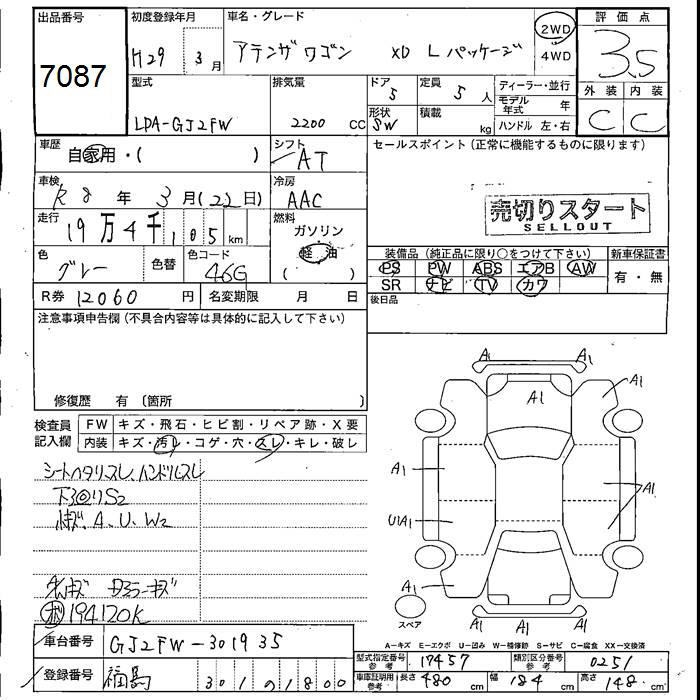 出品番号
7087
初度登録年月
H29 3月
車名・グレード
アテンザワゴン XD Lパッケージ
2WD
4WD
評価点
3.5
外装 内装
C C
型式
LDA-GJ2FW
排気量
2200 CC
ドア
5
形状
SW
定員
5人
積載
kg
ディーラー・並行
モデル年式 年
ハンドル 左・右
車歴
自家用・( )
シフト
AT
セールスポイント (正常に機能するものに限ります)
売切りスタート
SELLOUT
車検
R8年 3月(22日)
冷房
AAC
走行
19万4千105km
燃料
ガソリン
軽油
( )
色
グレー
色替
色コード
46G
装備品 (純正品に限り○をつけて下さい)
新車保証書
PS PW ABS エアB AW
SR ナビ TV カワ
有・無
R券 12060円
名変期限 月 日
後日品
注意事項申告欄 (不具合内容等は具体的に記入して下さい)
修復歴 有 〔箇所 〕
検査員記入欄
FW キズ・飛石・ヒビ割・リペア跡・X要
内装 キズ・汚レ・コゲ・穴・スレ・キレ・破レ
シートヘタリスレ、ハンドルスレ
下回りS2
小キズ、A、U、W2
194120K
A1 A1
A1
A1
A1
A1
U1A1
A1
A1 A1
スペア
A-キズ E-エクボ U-凹み W-補修跡 S-サビ C-腐食 XX-交換済
車台番号 GJ2FW-301935
型式指定番号 参考 17457
類別区分番号 参考 0251
登録番号 福島 301 の 1800
車庫証明用 参考 長さ 480cm 幅 184cm 高さ 148cm